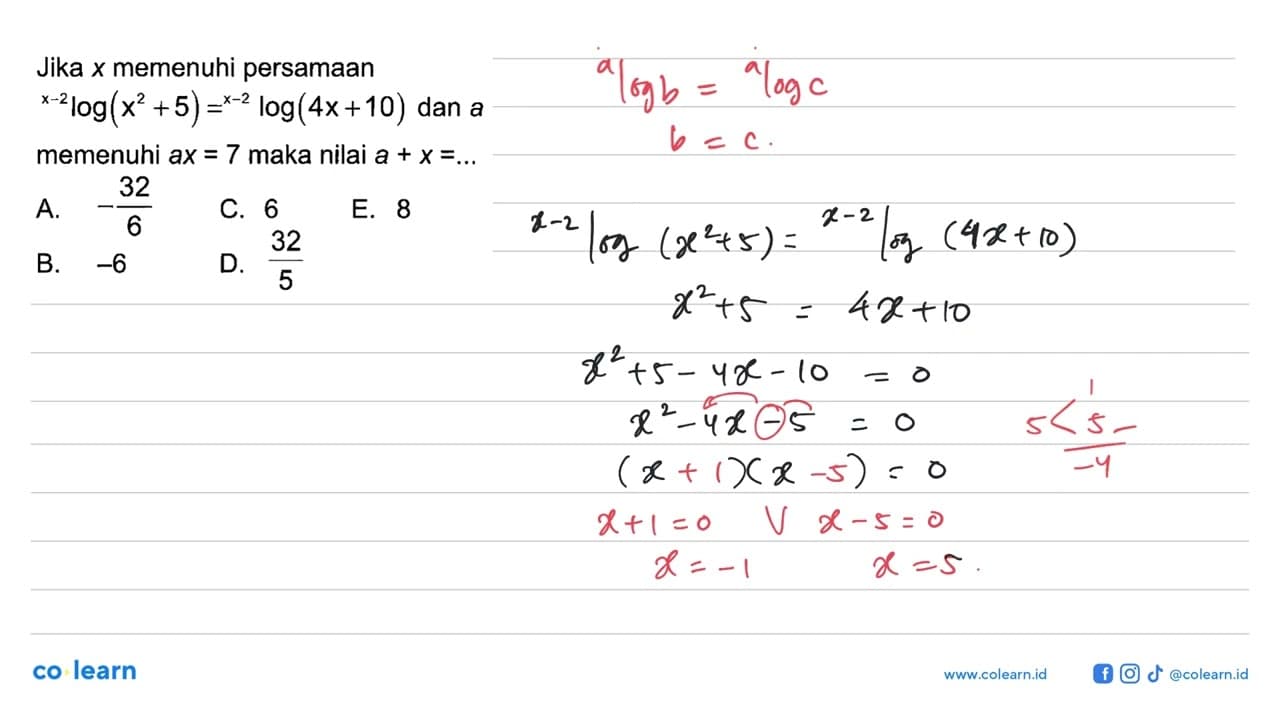 Jika x memenuhi persamaan
ˣ⁻²log(x² + 5) = ˣ⁻² log(4x + 10) dan a
memenuhi ax = 7 maka nilai a + x =...
A. -32/6 C. 6 E. 8
B. –6 D. 32/5
ᵃlog b = ᵃlog c
b = c.
ˣ⁻²log (x²+5) = ˣ⁻²log (4x+10)
x²+5 = 4x+10
x²+5-4x-10 = 0
x²-4x-5 = 0
5 < 1
5 -
-4
(x + 1)(x -5) = 0
x+1=0 V x-5=0
x=-1 x=5.
co learn
www.colearn.id
@colearn.id